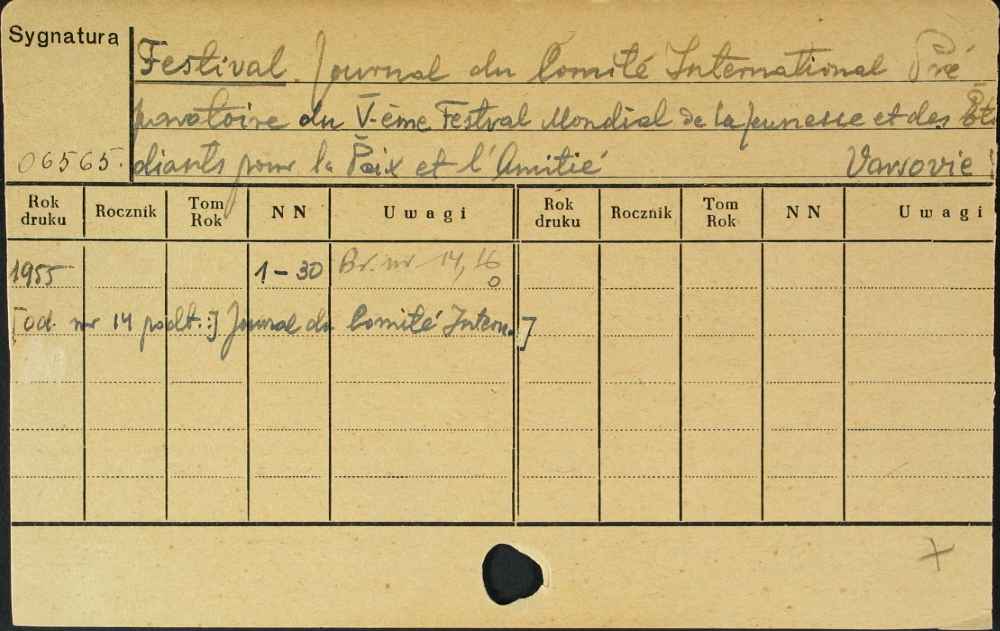 Sygnatura
Festival. Journal du Comité International Pré
paratoire du V-ème Festval Mondial de la Jeunesse et des Étu
06565. diants pour la Paix et l'Amitié Varsovie
Rok druku Rocznik Tom Rok NN Uwagi Rok druku Rocznik Tom Rok NN Uwagi
1955 1-30 Br. nr 14, 16
0
[od nr 14 podt.:] Journal du Comité Intern.]
+